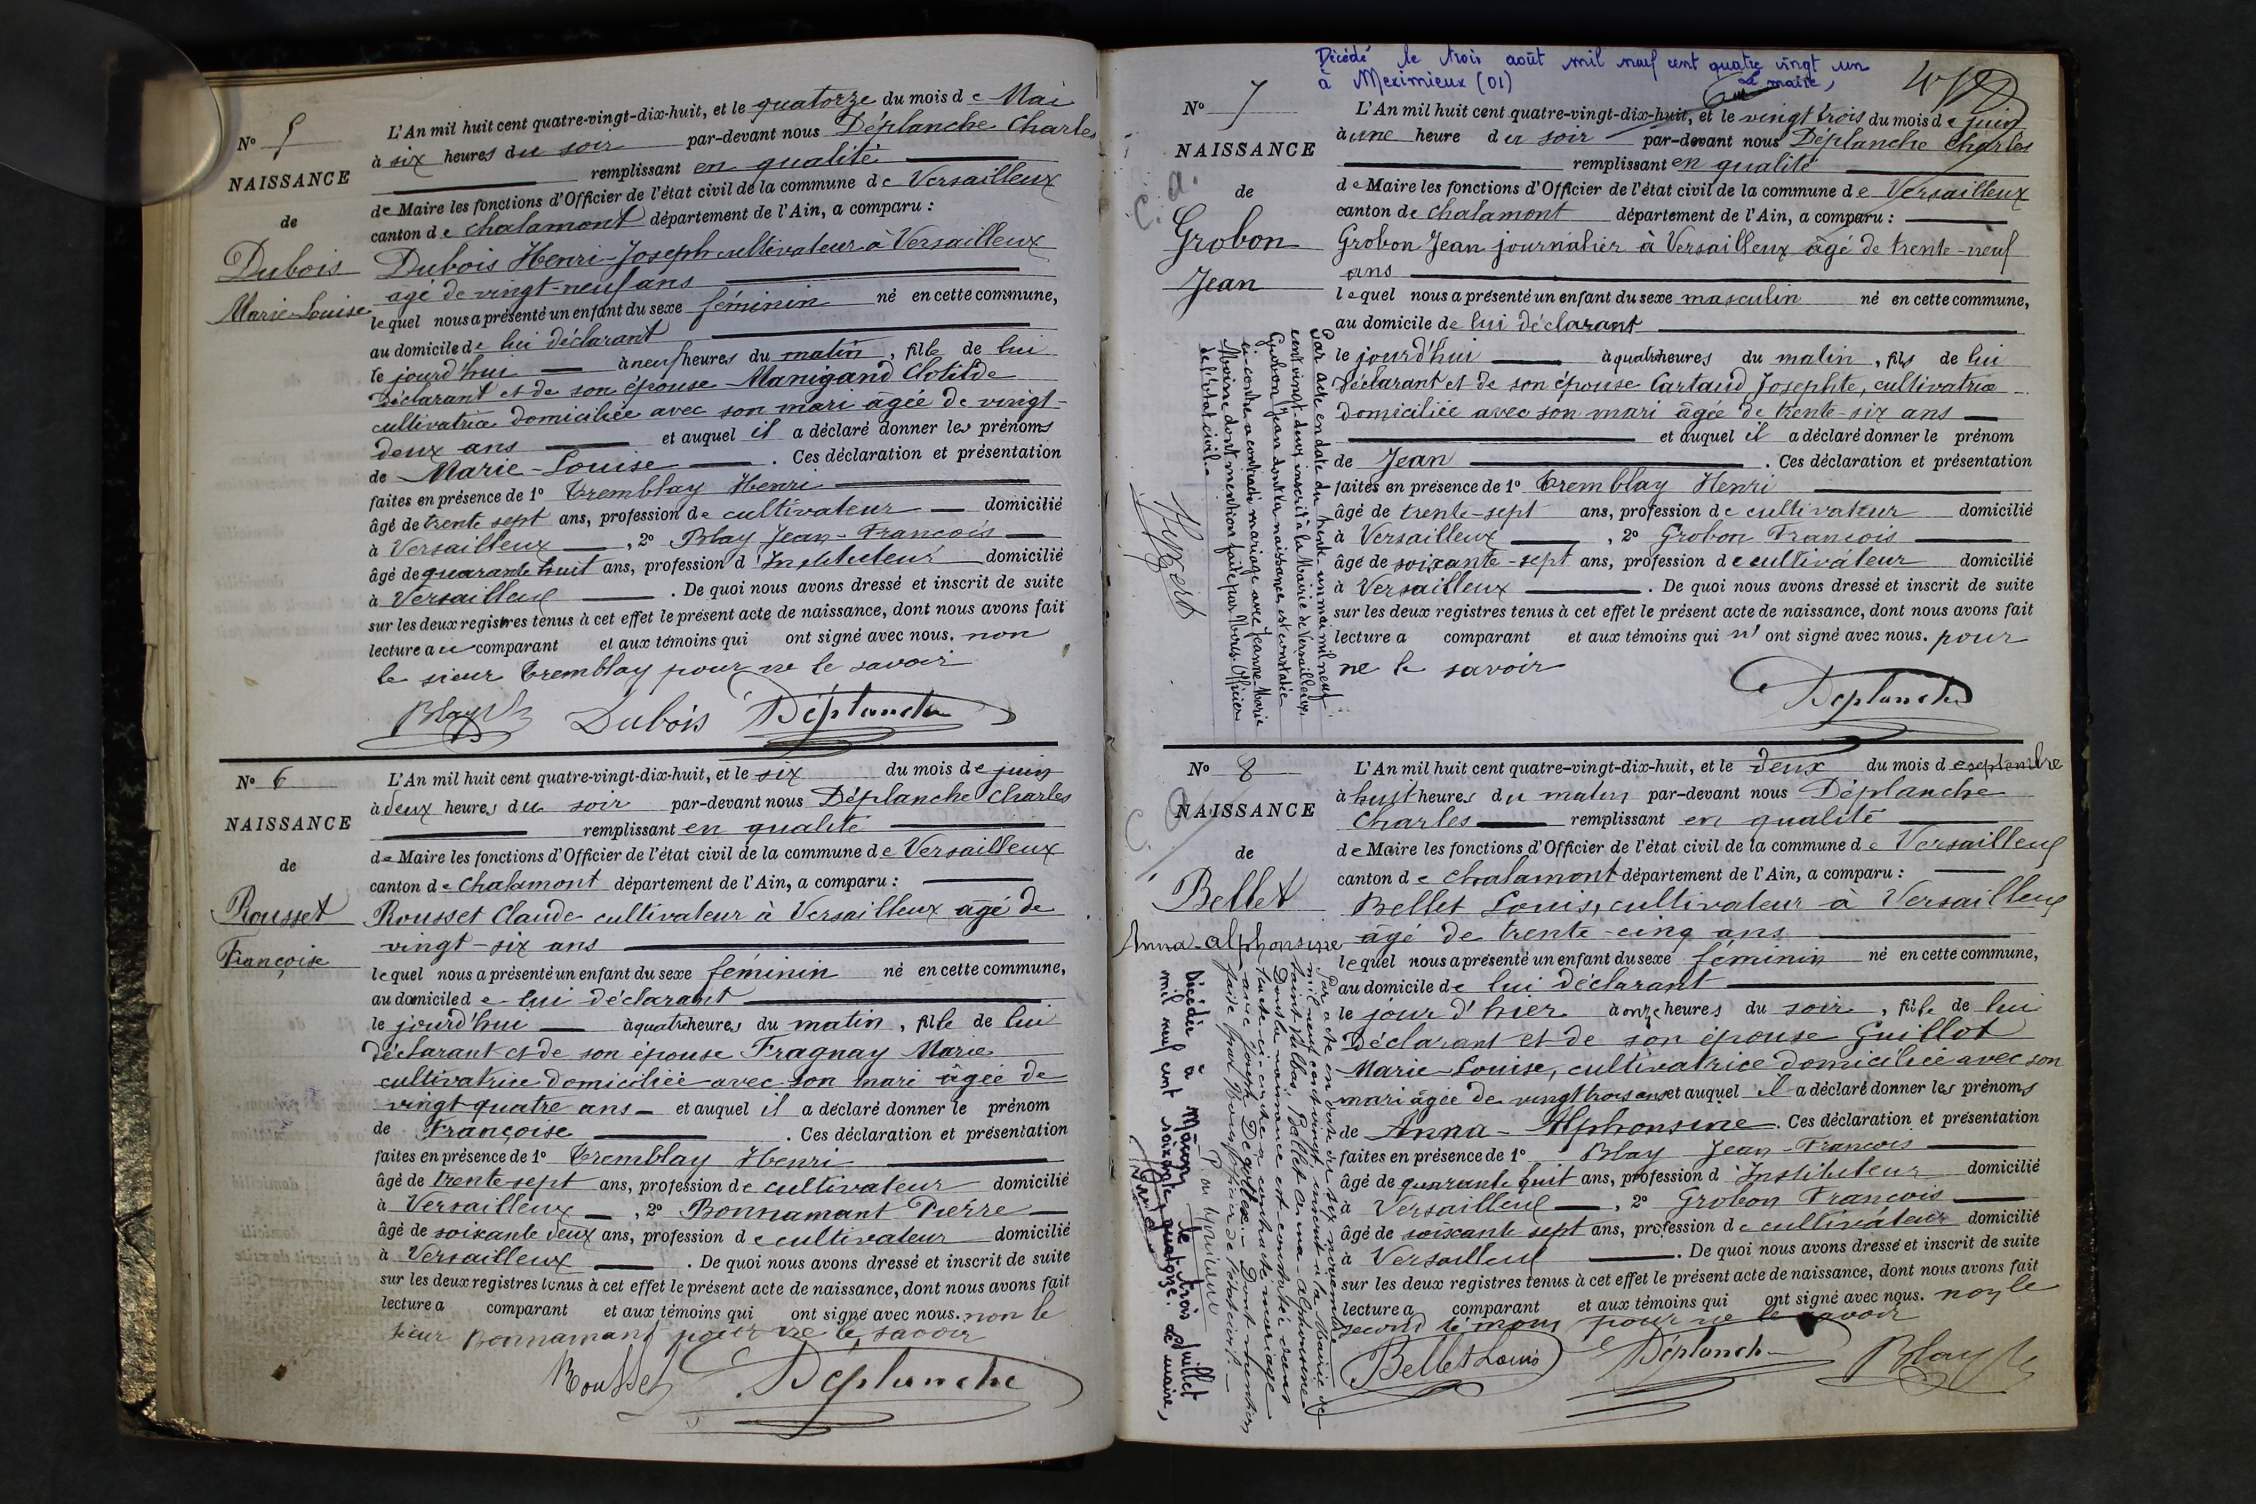 N° 5
NAISSANCE
de
Dubois
Marie-Louise
L'An mil huit cent quatre-vingt-dix-huit, et le quatorze du mois de Mai
à six heures du soir par-devant nous Déplanche Charles
remplissant en qualité
de Maire les fonctions d'Officier de l'état civil de la commune de Versailleux
canton de Chalamont département de l'Ain, a comparu :
Dubois Henri-Joseph cultivateur à Versailleux
âgé de vingt-neuf ans
lequel nous a présenté un enfant du sexe féminin né en cette commune,
au domicile de lui déclarant
le jourd'hui à neuf heures du matin, fille de lui
déclarant et de son épouse Manigand Clotilde
cultivatrice domiciliée avec son mari âgée de vingt-
deux ans et auquel il a déclaré donner les prénoms
de Marie-Louise. Ces déclaration et présentation
faites en présence de 1° Tremblay Henri
âgé de trente sept ans, profession de cultivateur domicilié
à Versailleux, 2° Blay Jean-François
âgé de quarante huit ans, profession d'Instituteur domicilié
à Versailleux. De quoi nous avons dressé et inscrit de suite
sur les deux registres tenus à cet effet le présent acte de naissance, dont nous avons fait
lecture au comparant et aux témoins qui ont signé avec nous. non
le sieur Tremblay pour ne le savoir
Blay Dubois Déplanche
N° 6
NAISSANCE
de
Rousset
Françoise
L'An mil huit cent quatre-vingt-dix-huit, et le six du mois de juin
à deux heures du soir par-devant nous Déplanche Charles
remplissant en qualité
de Maire les fonctions d'Officier de l'état civil de la commune de Versailleux
canton de Chalamont département de l'Ain, a comparu :
Rousset Claude cultivateur à Versailleux âgé de
vingt-six ans
lequel nous a présenté un enfant du sexe féminin né en cette commune,
au domicile de lui déclarant
le jourd'hui à quatre heures du matin, fille de lui
déclarant et de son épouse Fragnay Marie
cultivatrice domiciliée avec son mari âgée de
vingt quatre ans et auquel il a déclaré donner le prénom
de Françoise. Ces déclaration et présentation
faites en présence de 1° Tremblay Henri
âgé de trente sept ans, profession de cultivateur domicilié
à Versailleux, 2° Bonnamant Pierre
âgé de soixante deux ans, profession de cultivateur domicilié
à Versailleux. De quoi nous avons dressé et inscrit de suite
sur les deux registres tenus à cet effet le présent acte de naissance, dont nous avons fait
lecture a comparant et aux témoins qui ont signé avec nous. non le
sieur Bonnamant pour ne le savoir
Rousset Déplanche
Décédé le trois août mil neuf cent quatre vingt un
à Meximieux (01) Le maire,
N° 7
NAISSANCE
C. a.
de
Grobon
Jean
L'An mil huit cent quatre-vingt-dix-huit, et le vingt trois du mois de juin
à une heure du soir par-devant nous Déplanche Charles
remplissant en qualité
de Maire les fonctions d'Officier de l'état civil de la commune de Versailleux
canton de Chalamont département de l'Ain, a comparu :
Grobon Jean journalier à Versailleux âgé de trente-neuf
ans
lequel nous a présenté un enfant du sexe masculin né en cette commune,
au domicile de lui déclarant
le jourd'hui à quatre heures du matin, fils de lui
déclarant et de son épouse Cartaud Josephte, cultivatrice
domiciliée avec son mari âgée de trente-six ans
et auquel il a déclaré donner le prénom
de Jean. Ces déclaration et présentation
faites en présence de 1° Tremblay Henri
âgé de trente-sept ans, profession de cultivateur domicilié
à Versailleux, 2° Grobon François
âgé de soixante-sept ans, profession de cultivateur domicilié
à Versailleux. De quoi nous avons dressé et inscrit de suite
sur les deux registres tenus à cet effet le présent acte de naissance, dont nous avons fait
lecture a comparant et aux témoins qui n'ont signé avec nous. pour
ne le savoir
Déplanche
Par acte en date du trente-un mai mil neuf
cent vingt-deux, inscrit à la Mairie de Versailleux,
Grobon Jean dont la naissance est constatée
ci-contre a contracté mariage avec Jeanne-Marie
Moine dont mention faite par Nous Officier
de l'état civil.
N° 8
NAISSANCE
C. a
de
Bellet
Anna-Alphonsine
L'An mil huit cent quatre-vingt-dix-huit, et le deux du mois de septembre
à huit heures du matin par-devant nous Déplanche
Charles remplissant en qualité
de Maire les fonctions d'Officier de l'état civil de la commune de Versailleux
canton de Chalamont département de l'Ain, a comparu :
Bellet Louis, cultivateur à Versailleux
âgé de trente-cinq ans
lequel nous a présenté un enfant du sexe féminin né en cette commune,
au domicile de lui déclarant
le jour d'hier à onze heures du soir, fille de lui
déclarant et de son épouse Guillot
Marie-Louise, cultivatrice domiciliée avec son
mari âgée de vingt trois ans et auquel il a déclaré donner les prénoms
de Anna-Alphonsine. Ces déclaration et présentation
faites en présence de 1° Blay Jean-François
âgé de quarante huit ans, profession d'Instituteur domicilié
à Versailleux, 2° Grobon François
âgé de soixante sept ans, profession de cultivateur domicilié
à Versailleux. De quoi nous avons dressé et inscrit de suite
sur les deux registres tenus à cet effet le présent acte de naissance, dont nous avons fait
lecture a comparant et aux témoins qui ont signé avec nous. non le
second témoin pour ne le savoir
Bellet Louis Déplanche Blay
Par acte en date du six novembre
mil neuf cent vingt, inscrit à la Mairie de
Bellet Anna-Alphonsine
Dont la naissance est constatée dans
l'acte ci-contre a contracté mariage
avec Joseph. Dont mention
faite par Nous, officier de l'état civil.
Décédée à Mâcon le trois Juillet
mil neuf cent soixante quatorze. Le maire,